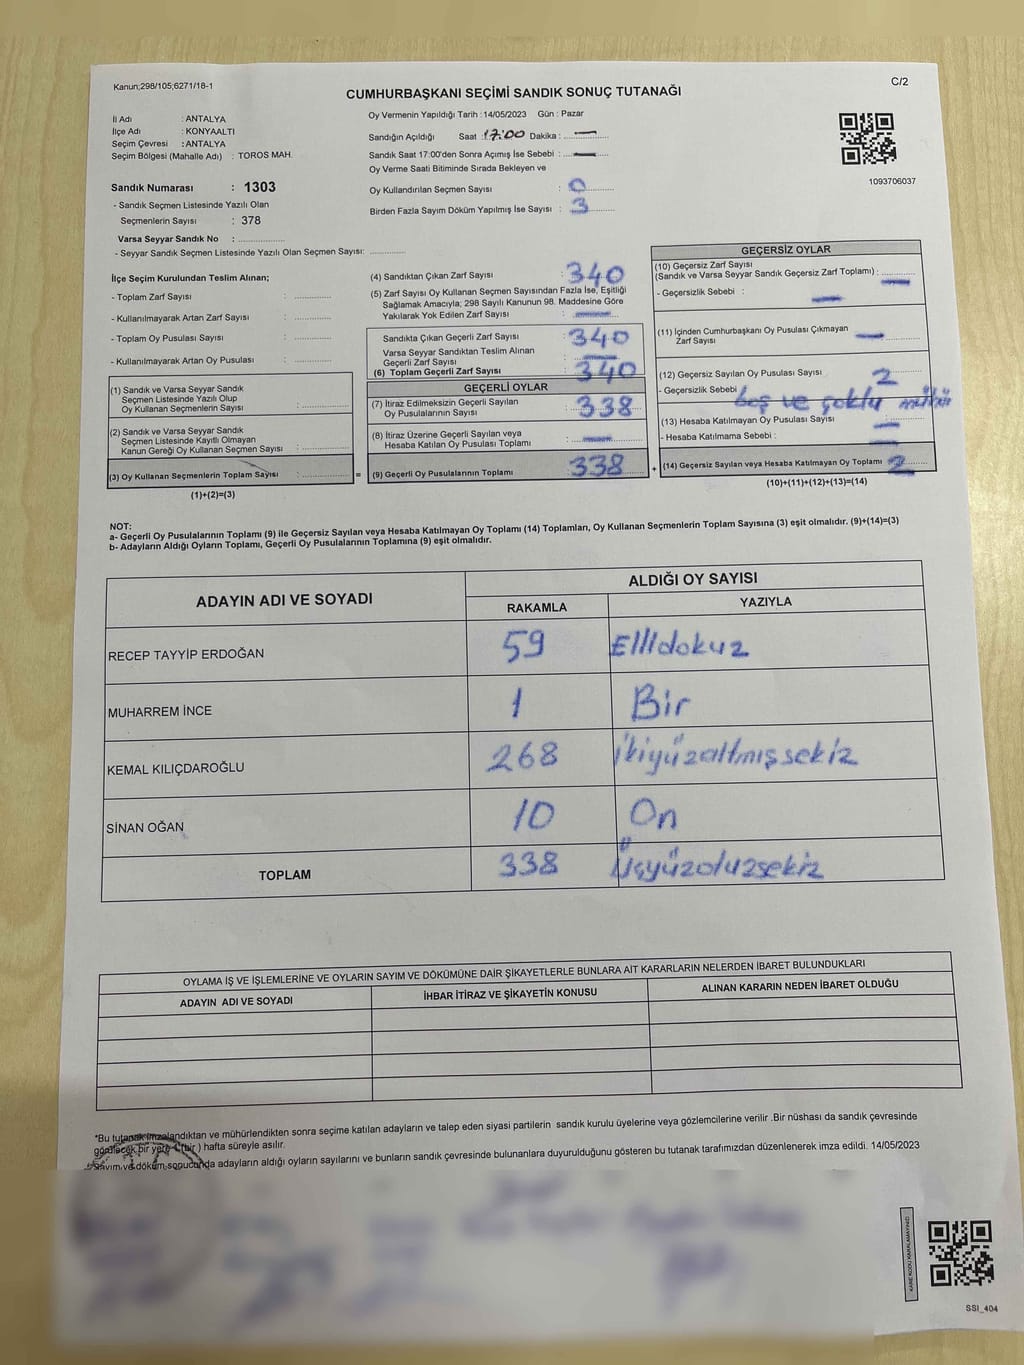 Kanun;298/105;6271/18-1
C/2
CUMHURBAŞKANI SEÇİMİ SANDIK SONUÇ TUTANAĞI
İl Adı : ANTALYA
İlçe Adı : KONYAALTI
Seçim Çevresi : ANTALYA
Seçim Bölgesi (Mahalle Adı) : TOROS MAH.
Sandık Numarası : 1303
- Sandık Seçmen Listesinde Yazılı Olan
Seçmenlerin Sayısı : 378
Varsa Seyyar Sandık No : ..............
- Seyyar Sandık Seçmen Listesinde Yazılı Olan Seçmen Sayısı: ..............
Oy Vermenin Yapıldığı Tarih :14/05/2023 Gün : Pazar
Sandığın Açıldığı Saat :17:00 Dakika : —
Sandık Saat 17:00'den Sonra Açımış İse Sebebi : —
Oy Verme Saati Bitiminde Sırada Bekleyen ve
Oy Kullandırılan Seçmen Sayısı : 0
Birden Fazla Sayım Döküm Yapılmış İse Sayısı : 3
1093706037
İlçe Seçim Kurulundan Teslim Alınan;
- Toplam Zarf Sayısı : ..............
- Kullanılmayarak Artan Zarf Sayısı : ..............
- Toplam Oy Pusulası Sayısı : ..............
- Kullanılmayarak Artan Oy Pusulası : ..............
(1) Sandık ve Varsa Seyyar Sandık
Seçmen Listesinde Yazılı Olup
Oy Kullanan Seçmenlerin Sayısı : ..............
(2) Sandık ve Varsa Seyyar Sandık
Seçmen Listesinde Kayıtlı Olmayan
Kanun Gereği Oy Kullanan Seçmen Sayısı : ..............
(3) Oy Kullanan Seçmenlerin Toplam Sayısı : .............. =
(1)+(2)=(3)
(4) Sandıktan Çıkan Zarf Sayısı : 340
(5) Zarf Sayısı Oy Kullanan Seçmen Sayısından Fazla İse, Eşitliği
Sağlamak Amacıyla; 298 Sayılı Kanunun 98. Maddesine Göre
Yakılarak Yok Edilen Zarf Sayısı : —
Sandıkta Çıkan Geçerli Zarf Sayısı : 340
Varsa Seyyar Sandıktan Teslim Alınan
Geçerli Zarf Sayısı : —
(6) Toplam Geçerli Zarf Sayısı : 340
GEÇERLİ OYLAR
(7) İtiraz Edilmeksizin Geçerli Sayılan
Oy Pusulalarının Sayısı : 338
(8) İtiraz Üzerine Geçerli Sayılan veya
Hesaba Katılan Oy Pusulası Toplamı : —
(9) Geçerli Oy Pusulalarının Toplamı : 338 +
GEÇERSİZ OYLAR
(10) Geçersiz Zarf Sayısı
(Sandık ve Varsa Seyyar Sandık Geçersiz Zarf Toplamı) : —
- Geçersizlik Sebebi : —
(11) İçinden Cumhurbaşkanı Oy Pusulası Çıkmayan
Zarf Sayısı : —
(12) Geçersiz Sayılan Oy Pusulası Sayısı : 2
- Geçersizlik Sebebi boş ve çoklu mühür
(13) Hesaba Katılmayan Oy Pusulası Sayısı : —
- Hesaba Katılmama Sebebi : —
(14) Geçersiz Sayılan veya Hesaba Katılmayan Oy Toplamı : 2
(10)+(11)+(12)+(13)=(14)
NOT:
a- Geçerli Oy Pusulalarının Toplamı (9) ile Geçersiz Sayılan veya Hesaba Katılmayan Oy Toplamı (14) Toplamları, Oy Kullanan Seçmenlerin Toplam Sayısına (3) eşit olmalıdır. (9)+(14)=(3)
b- Adayların Aldığı Oyların Toplamı, Geçerli Oy Pusulalarının Toplamına (9) eşit olmalıdır.
ADAYIN ADI VE SOYADI ALDIĞI OY SAYISI
RAKAMLA YAZIYLA
RECEP TAYYİP ERDOĞAN 59 Ellidokuz
MUHARREM İNCE 1 Bir
KEMAL KILIÇDAROĞLU 268 İkiyüzaltmışsekiz
SİNAN OĞAN 10 On
TOPLAM 338 Üçyüzotuzsekiz
OYLAMA İŞ VE İŞLEMLERİNE VE OYLARIN SAYIM VE DÖKÜMÜNE DAİR ŞİKAYETLERLE BUNLARA AİT KARARLARIN NELERDEN İBARET BULUNDUKLARI
ADAYIN ADI VE SOYADI İHBAR İTİRAZ VE ŞİKAYETİN KONUSU ALINAN KARARIN NEDEN İBARET OLDUĞU
*Bu tutanak imzalandıktan ve mühürlendikten sonra seçime katılan adayların ve talep eden siyasi partilerin sandık kurulu üyelerine veya gözlemcilerine verilir .Bir nüshası da sandık çevresinde
görülecek bir yere 1 (bir ) hafta süreyle asılır.
Sayım ve döküm sonucunda adayların aldığı oyların sayılarını ve bunların sandık çevresinde bulunanlara duyurulduğunu gösteren bu tutanak tarafımızdan düzenlenerek imza edildi. 14/05/2023
SSI_404